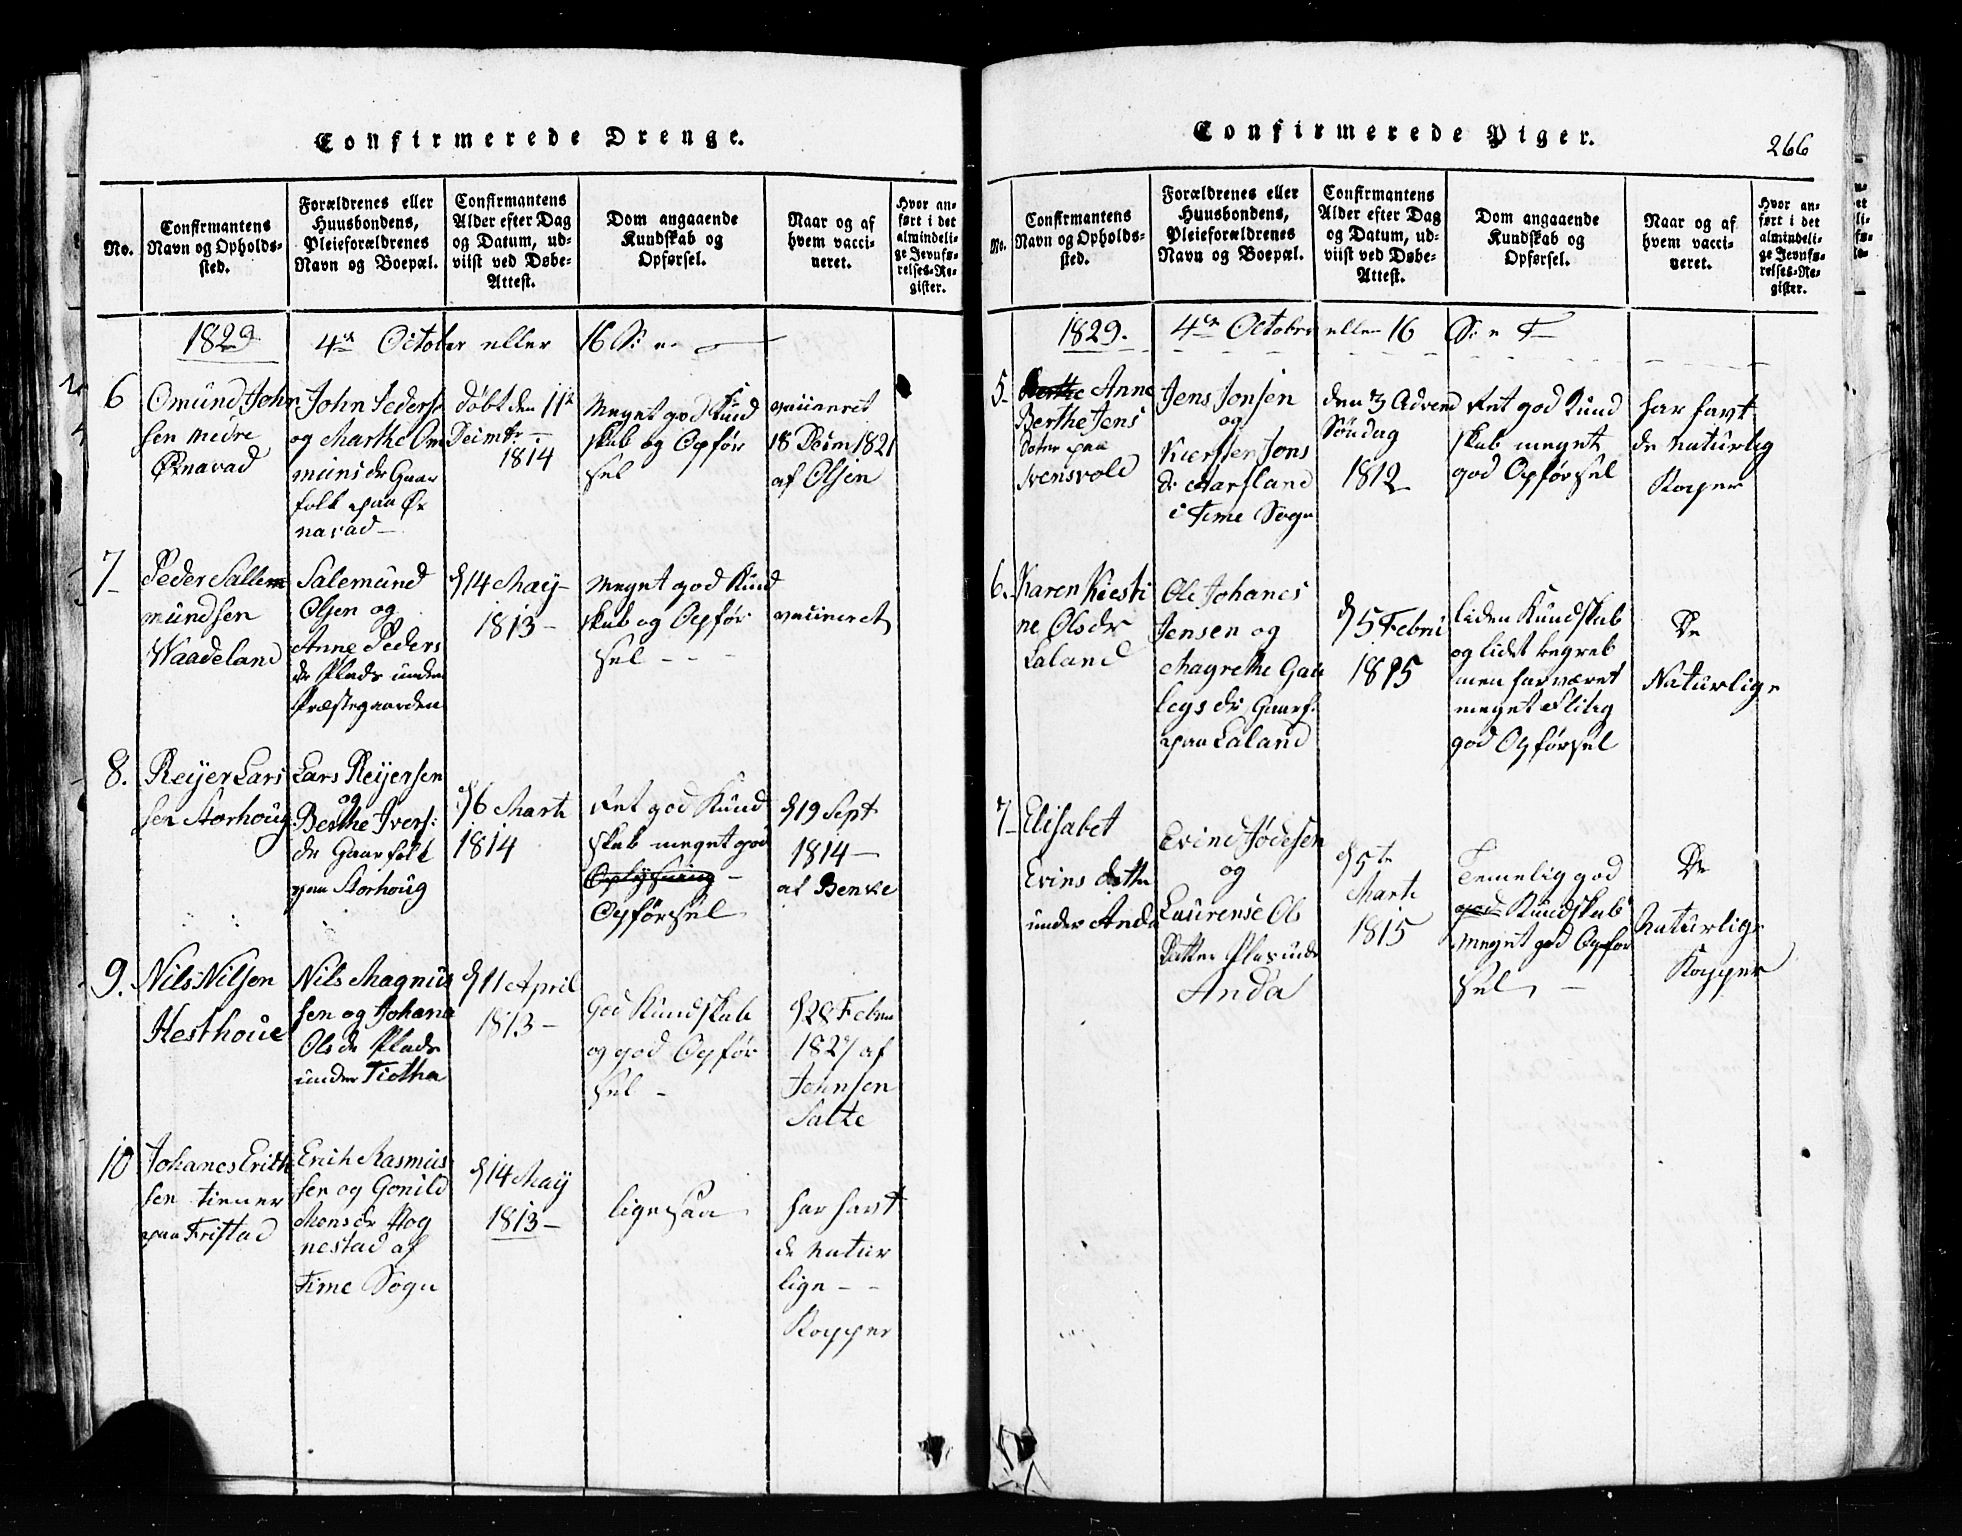 Confirmerede Drenge.
No.
Confirmantens
Navn og Opholds-
sted.
Forældrenes eller
Huusbondens,
Pleieforældrenes
Navn og Boepæl.
Confirmantens
Alder efter Dag
og Datum, ud-
viist ved Døbe-
Attest.
Dom angaaende
Kundskab og
Opførsel.
Naar og af
hvem vacci-
neret.
Hvor an-
ført i det
almindeli-
ge Jevnfø-
relses-Re-
gister.
1829 4de October eller 16 S: e.
6
Omund John
sen nedre
Øxnavad
John Peders:
og Marthe Om
munsdr Gaar
folk paa Øx
navad
Døbt den 11te
Decmbr
1814
Meget god Kund
skab og Opfør
sel
vaccineret
18 Decm 1821
af Olsen
7
Peder Sallem
mundsen
Waadeland
Salemund
Olsen og
Anne Peders
dr Plads under
Præstegaarden
d 14 May
1813
Meget god Kund
skab og Opfør
sel
vaccineret
8.
Reijer Lars
sen Storhoug
Lars Reijersen
og
Berthe Ivers:
dr Gaarfolk
paa Storhoug
d 6 Marti
1814
Ret god Kund
skab meget god
Oplysning
Opførsel
d 19 Sept
1814
af Benke
9.
Nils Nilsen
Hesthoue
Nils Magnus
sen og Johana
Olsdr Plads
under Tiotha
d 11 April
1813
God Kundskab
og god Opfør
sel
d 28 Febru
1827 af
Johnsen
Salte
10
Johanes Erich
sen tiener
paa Fristad
Erich Rasmus
sen og Gonild
Monsdr Hog
nestad af
Time Sogn
d 14 Maij
1813
ligesaa
har havt
de Natur
lige
Kopper
Confirmerede Piger.
266
No.
Confirmantens
Navn og Opholds-
sted.
Forældrenes eller
Huusbondens,
Pleieforældrenes
Navn og Boepæl.
Confirmantens
Alder efter Dag
og Datum, ud-
viist ved Døbe-
Attest.
Dom angaaende
Kundskab og
Opførsel.
Naar og af
hvem vacci-
neret.
Hvor an-
ført i det
almindeli-
ge Jevnfø-
relses-Re-
gister.
1829. 4de October eller 16 S: e T
5
Berthe Anne
Berthe Jens
Dater paa
Svensvold
Jens Jonsen
og
Kiersten Jons
dr Garsland
i Time Sogn
den 3 Advend
Søndag
1812
Ret god Kund
skab meget
god Opførsel
har havt
de Naturlig
Kopper
6.
Karen Kiesti
ne Olsdr
Laland
Ole Johanes
Jensen og
Magrethe Gau
legsdr Gaarf.
paa Laland
d 5 Febru
1815
liden Kundskab
og lidet begreb
men har været
meget Flitig
god Opførsel
De
Naturlige
7
Elisabet
Evins datter
under Anda
Evind Jødesen
og
Laurense Ols
Datter Plas under
Anda
d 5te
Marti
1815
Temelig god
god Kundskab
meget god Opfør
sel
De
Naturlige
Kopper